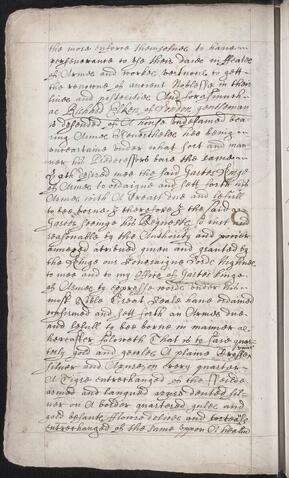 the more enforce themselves to have in
perseverance to use their daies in feates
of Armes and workes vertuous to gett
the renowne of ancient Noblesse in their
lines and posterities And forasmuch
as Richard of gentleman
is descended of A house undefamed bea
ring Armes Neverthelesse hee being in
uncertaine under what sort and man
ner his Predecessors bare the same
Hath desired mee the said Garter Kinge
of Armes to ordaigne and sett forth his
Armes with A Creast due and lefull
to bee borne & therefore I the said
Garter seeinge his Request so just and
reasonable by the Authority and power
annexed attribued given and granted by
the Kinge our Soveraigne Lorde highnes
to mee and to my Office of Garter Kinge
of Armes by expresse words under his
most Noble Great Seale have ordained
confirmed and sett forth an Armes due
and lefull to bee borne in manner as
hereafter followeth That is to say quar
terly gold and geules A plaine Crosse
silver and Azure on every quarter
A Tigre enterchanged of the feilde
armed and langued azure dented sil
ver on A border quartered gules and
gold besants flouredelices and
enterchanged of the same uppon A healm